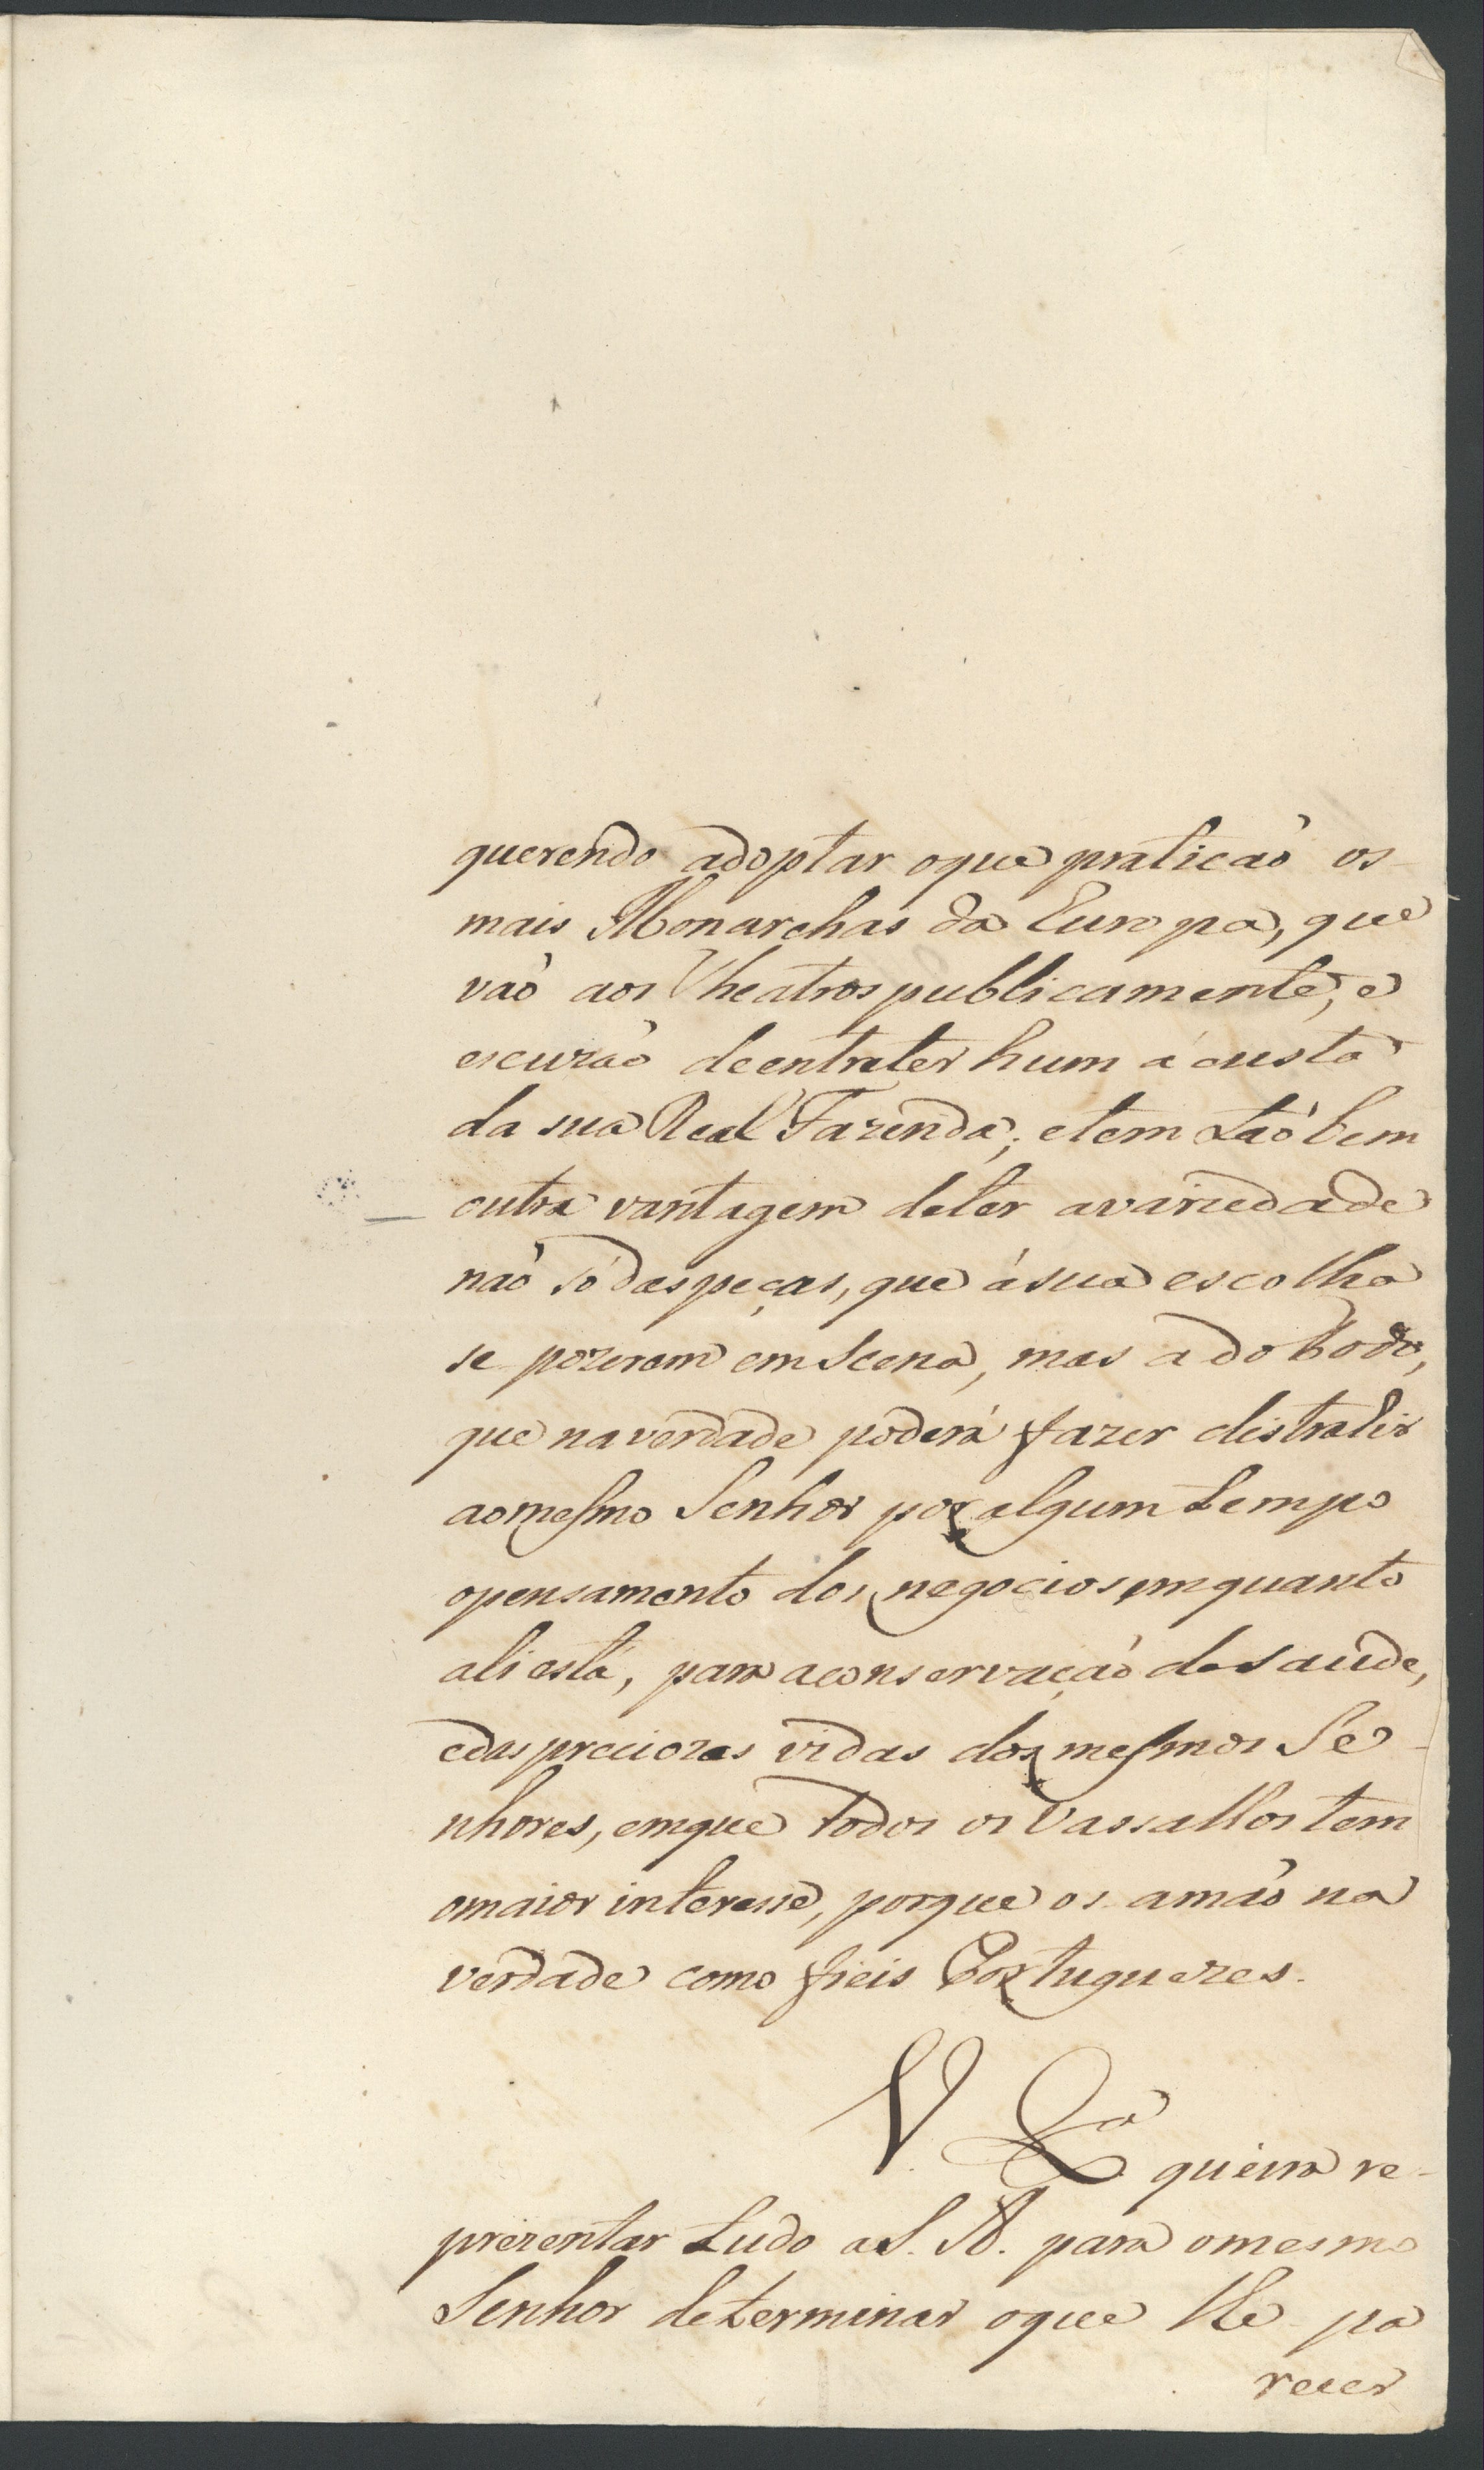 querendo adoptar oque praticaõ os
mais Monarchas da Europa, que
vaõ aos Theatros publicamente, e
escuzaõ deentreter hum á custa
da sua Real Fazenda; etem taõ bem
outra vantagem deter avariedade
naõ só das peças, que ásua escolha
se pozerem em Scena, mas a do Todo,
que naverdade poderá fazer distrahir
aomesmo Senhor por algum tempo
opensamento dos negocios emquanto
ali está, para aconservaçaõ da saude,
edas preciozas vidas dos mesmos Se-
nhores, emque todos os Vassallos tem
omaior interesse, porque os amaõ na
verdade como fieis Portuguezes.
V. Exª queira re-
prezentar tudo a S. A. para omesmo
Senhor determinar oque lhe pa
recer